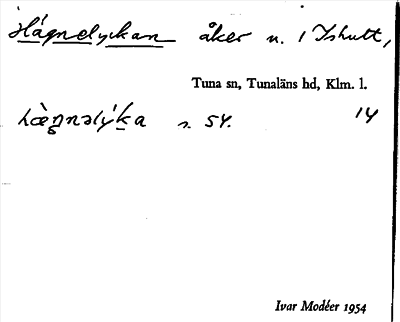 Hägnelyckan åker n. i Ishult,
Tuna sn, Tunaläns hd, Klm. l.
hæ̀gnəlýka s. 54. 14
Ivar Modéer 1954